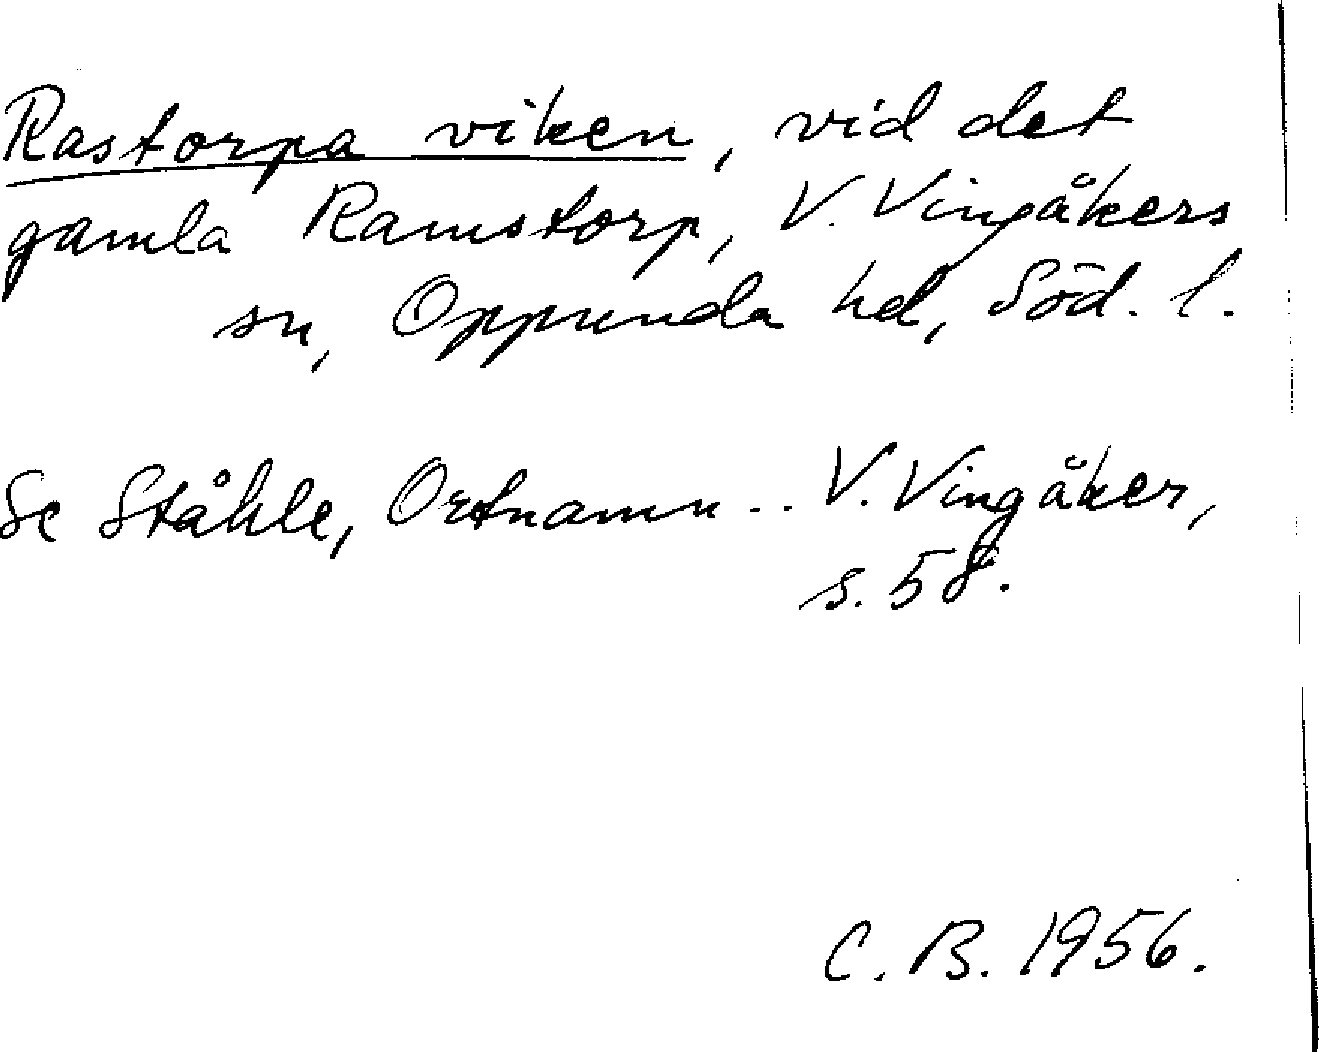 Rastorpa viken, vid det
gamla Ramstorp, V. Vingåkers
sn, Oppunda hd, Söd. l.
Se Ståhle, Ortnamn .. V. Vingåker,
s. 58.
C. B. 1956.